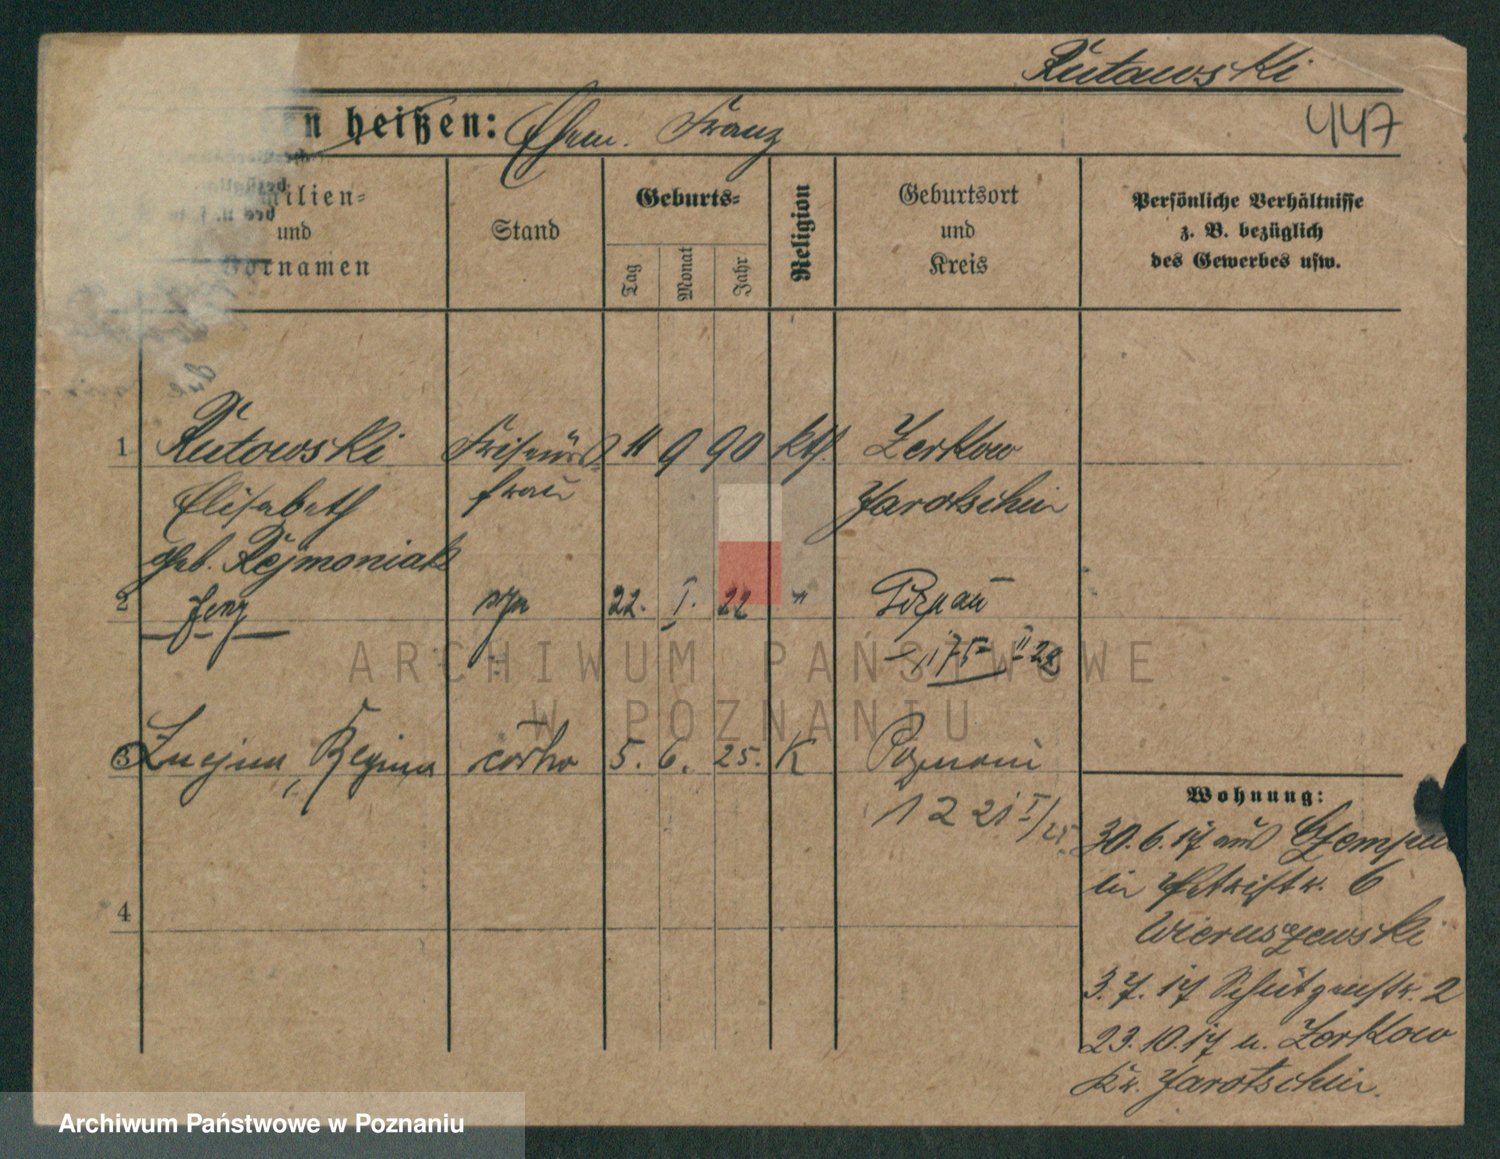 Rutowski
en heißen: Ehem. Franz
447
milien-
und
Vornamen
Stand
Geburts-
Tag
Monat
Jahr
Religion
Geburtsort
und
Kreis
Persönliche Verhältnisse
z. B. bezüglich
des Gewerbes usw.
1 Rutowski Friseurs- 11 9 90 kth. Zerkow
Elisabeth frau Jarotschin
geb. Rejmoniak
2 Jerzy syn 22. I. 22 " Poznań
1175 II 28
3 Lucyna, Regina córka 5. 6. 25. K Poznań
12 21 I/25
4
Wohnung:
30.6.17 aus
in Petristr. 6
Wieruszewski
3.7.17 Schützenstr. 2
23.10.17 n. Zerkow
Kr. Jarotschin.
ARCHIWUM PAŃSTWOWE
W POZNANIU
Archiwum Państwowe w Poznaniu